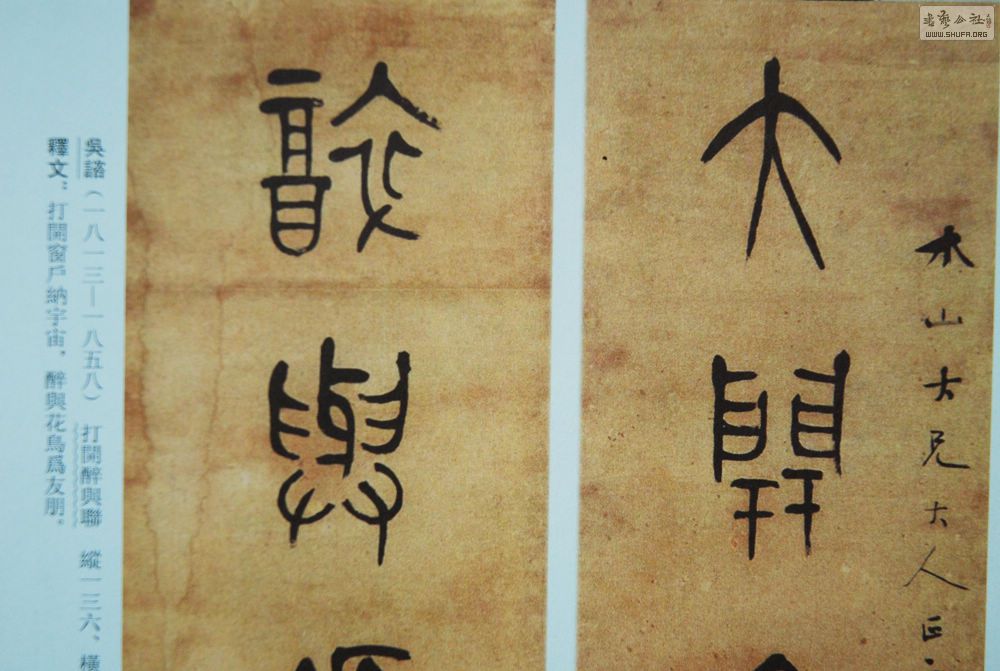 書藝公社
WWW.SHUFA.ORG
山大兄大人
大開
與
吳諮（一八一三—一八五八） 打開醉與聯 縱一三六、橫
釋文：打開窗戶納宇宙，醉與花鳥爲友朋。